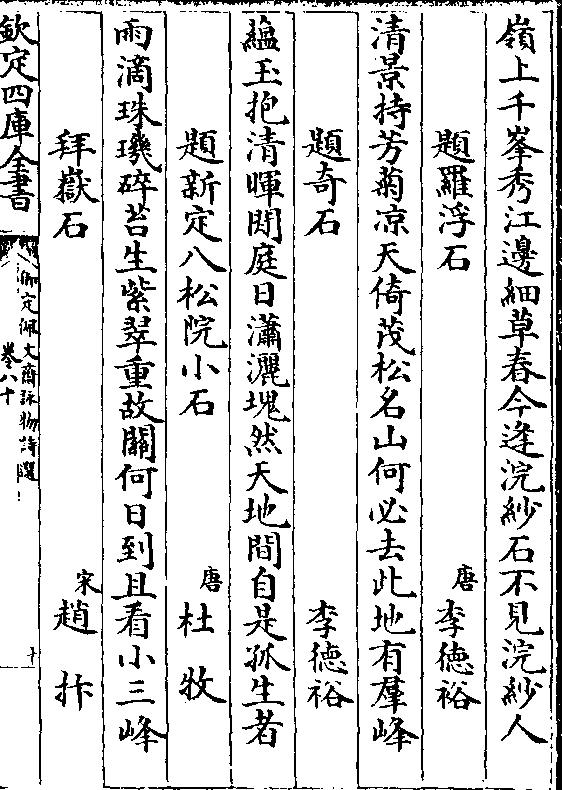 嶺上千峯秀江邊細草春今逢浣紗石不見浣紗人
題羅浮石 唐 李德裕
清景持芳菊凉天倚茂松名山何必去此地有羣峰
題奇石 李德裕
蘊玉抱清暉閒庭日瀟灑塊然天地間自是孤生者
題新定八松院小石 唐 杜牧
雨滴珠璣碎苔生紫翠重故關何日到且看小三峰
拜嶽石 宋 趙抃
欽定四庫全書 御定佩文齋詠物詩選 卷八十 十